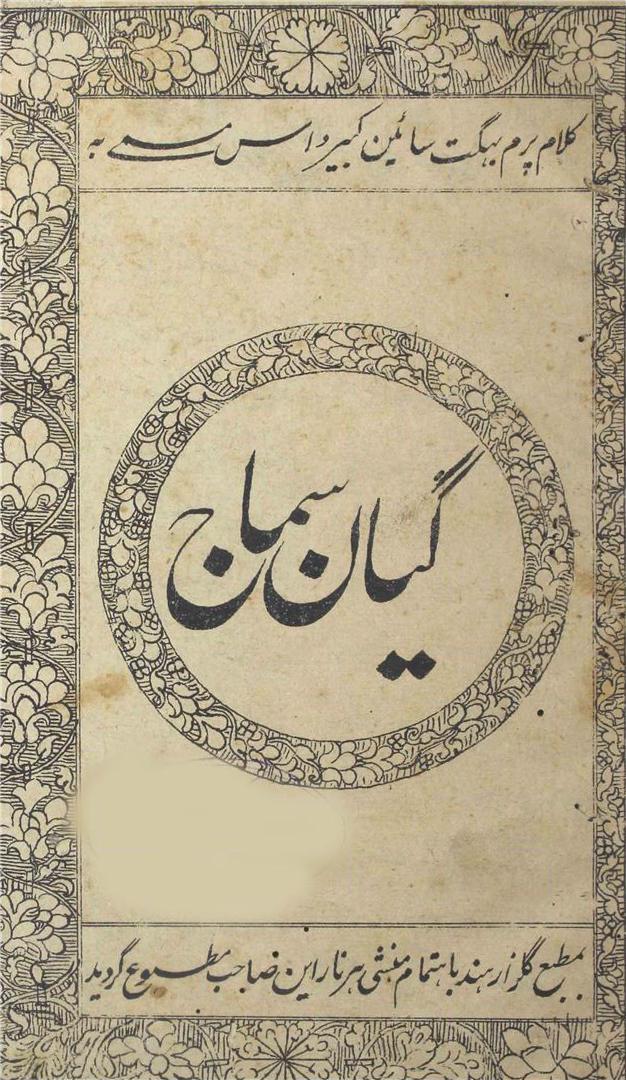 کلام پرم بہگت سائین کبیر داس مسمے بہ
گیان سماج
بمطبع گلزار ہند باہتمام منشی ہرناراین صاحب مطبوع گردید